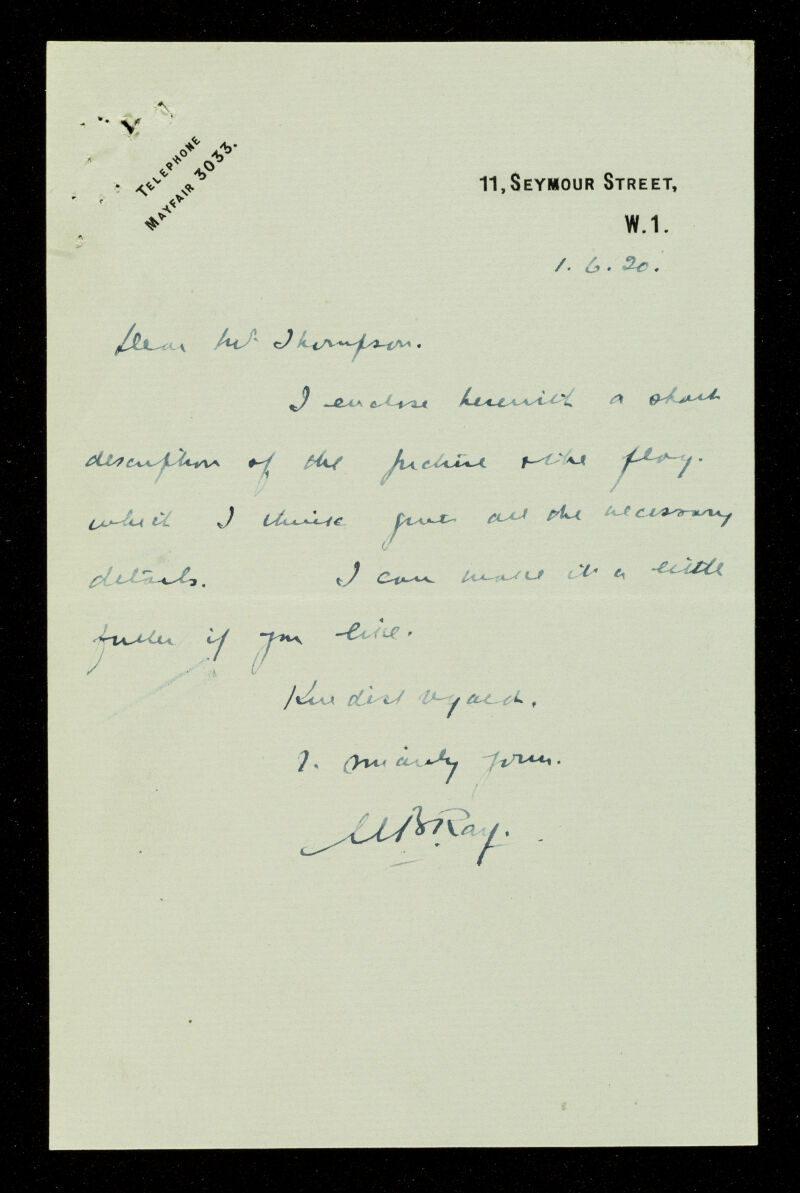 TELEPHONE
MAYFAIR 3033.
11, SEYMOUR STREET,
W.1.
1. 6. 20.
Dear Mr Thompson.
I enclose herewith a short
description of the picture & the flag.
which I think gives all the necessary
details. I can make it a little
fuller if you like.
Kindest regards.
Y. sincerely yours.
MBRay.